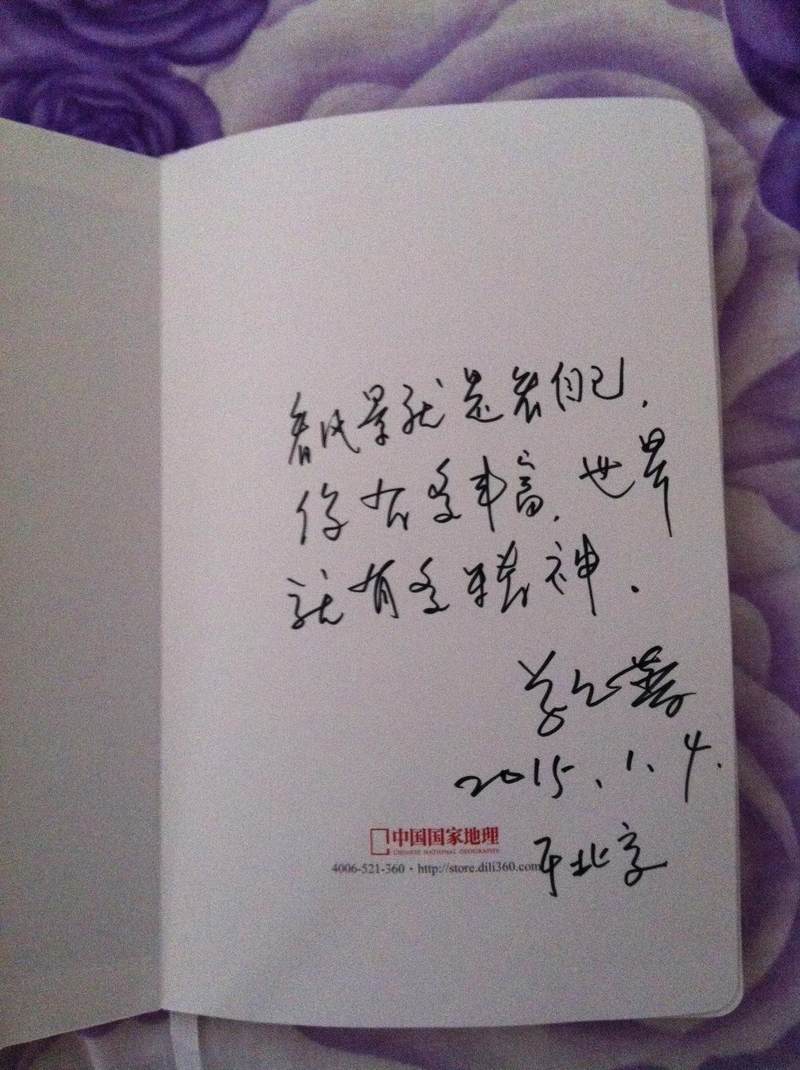 看风景就是看自己.
你有多丰富,世界
就有多精神.
单之蔷
2015.1.4.
中国国家地理
CHINESE NATIONAL GEOGRAPHY
4006-521-360·http://store.dili360.com
于北京